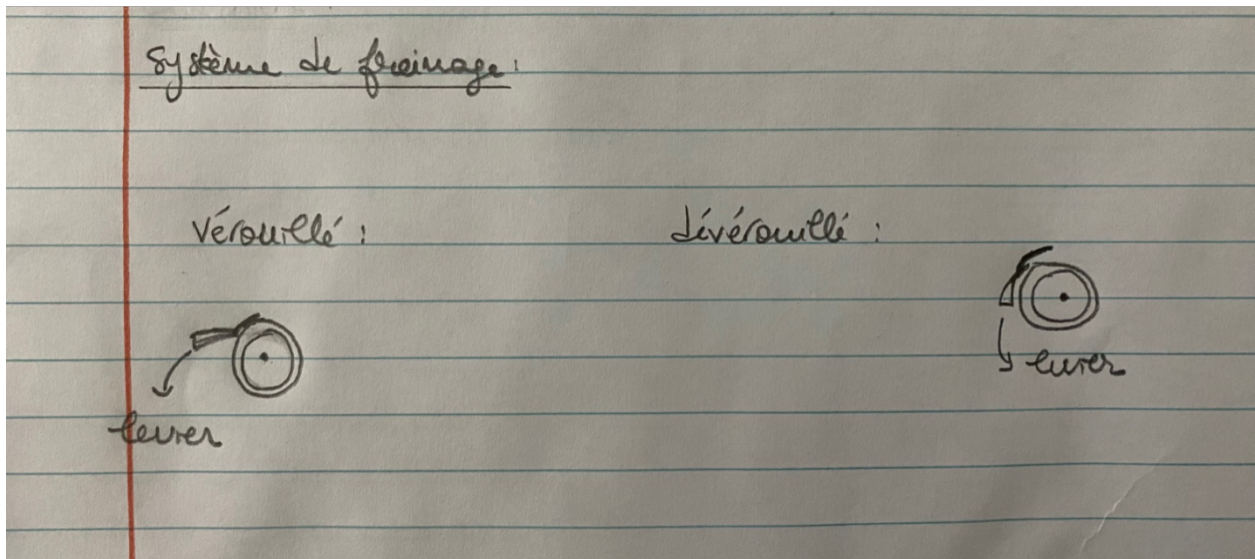 système de freinage:
Vérouillé : dévérouillé :
levier
levier